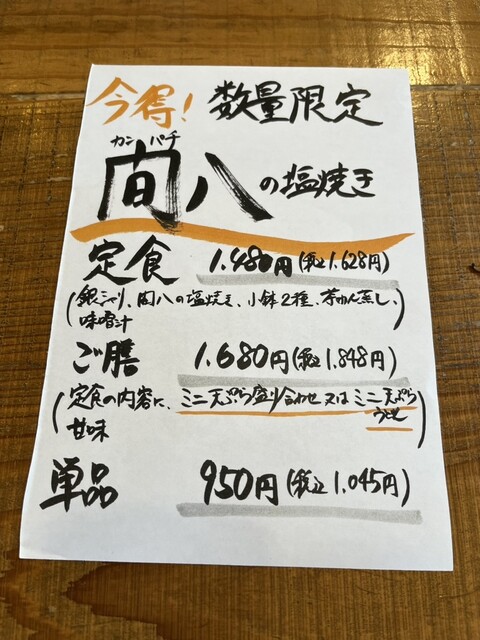 今得! 数量限定
カンパチ
間八の塩焼き
定食 1.480円(税込1.628円)
(銀シャリ、間八の塩焼き、小鉢2種、茶わん蒸し、
味噌汁)
ご膳 1.680円(税込1.848円)
(定食の内容に、ミニ天ぷら盛り合わせ又はミニ天ぷら
うどん
甘味)
単品 950円(税込1.045円)